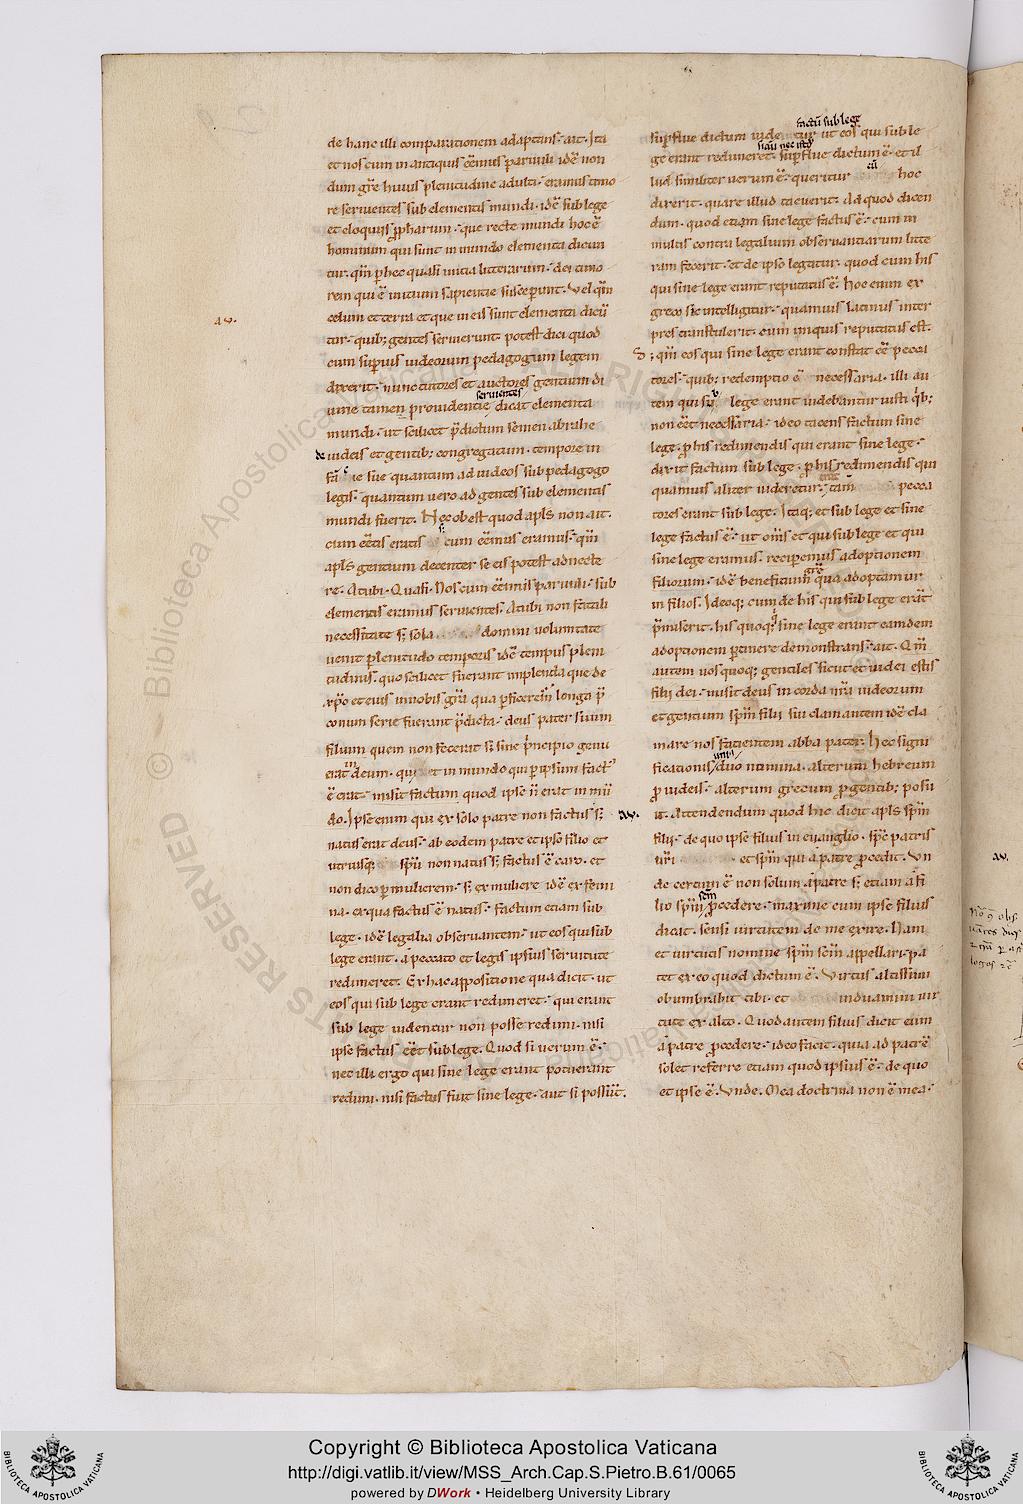 de hanc illi comparationem adaptans· ait. Ita
et nos cum in antiquis eēmus paruuli idē non
dum grē huius plenitudine adulti· eramus timo
re seruientes sub elementis mundi· idē sub lege
et eloquiis ꝓpharum· que recte mundi hoc ē
hominum qui sunt in mundo elementa dicun
tur. qm̄ p hec quasi initia litterarum· dei timo
rem qui ē initium sapientie susceperunt. Vel qm̄
celum et terra et que in eis sunt elementa dicū
tur· quib; gentes seruierunt· potest dici quod
av.
cum supius iudeorum pedagogum legem
dixerit· nunc tutores et auctores gentium di
uine tamen prouidentie dicat elementa
seruientes
mundi· ut scilicet p̄dictum semen abrahe
de iudeis et gentib; congregatum· tempore in
fātie sue quantum ad iudeos sub pedagogo
legis· quantum uero ad gentes sub elementis
mundi fuerit. Nec obest quod apls non ait.
cum eētis eratis s; cum eēmus eramus· qm̄
apls gentium decenter se eis potest adnecte
re· At ubi· Quasi· Nos cum eēmus paruuli· sub
elementis eramus seruientes· At ubi non fatali
necessitate s; sola domini uoluntate
uenit plenitudo temporis idē tempus pleni
tudinis· quo scilicet fuerant implenda que de
xp̄o et eius in nobis gr̄a qua pficeremr̄ longa p̄
conum serie fuerant p̄dicta· deus pater suum
filium quem non fecerat s; sine p̄ncipio genu
erat deum· qui et in mundo qui p ipsum fact'
ē erat· misit factum quod ipse n̄ erat in mū
do. Ipse enim qui ex solo patre non factus s;
natus erat deus· ab eodem patre et ipso filio et
utriusq; spū non natus s; factus ē caro· et
non dico p mulierem· s; ex muliere idē ex femi
na· ex qua factus ē natus· factum etiam sub
lege· idē legalia obseruantem· ut eos qui sub
lege erant· a peccato et legis ipsius seruitute
redimeret. Ex hac appositione qua dicit· ut
eos qui sub lege erant redimeret· qui erant
sub lege uidentur non posse redimi· nisi
ipse factus eēt sub lege. Quod si uerum ē·
nec illi ergo qui sine lege erant potuerant
redimi· nisi factus fuit sine lege· aut si possūt.
factū sub lege
supflue dictum uidetur ut eos qui sub le
ge erant redimeret· supflue dictum ē· et il
lud similiter uerum ē· queritur cū hoc
dixerit· quare illud tacuerit· Ad quod dicen
dum· quod etiam sine lege factus ē· cum in
multis contra legalium obseruantiarum litte
ram fecerit· et de ipso legatur· quod cum his
qui sine lege erant reputatus ē· hoc enim ex
greco sic intelligitur· quamuis latinus inter
pres transtulerit· cum iniquis reputatus est.
; qm̄ eos qui sine lege erant constat eē pecca
tores· quib; redemptio ē necessaria· illi au
tem qui sub lege erant uidebantur iusti q'b;
non eēt necessaria· ideo tacens factum sine
lege· ꝓ his redimendis qui erant sine lege·
dixit factum sub lege· ꝓ his redimendis qui
quamuis aliter uideretur· tam̄ pecca
tores erant sub lege. Itaq; et sub lege et sine
lege factus ē· ut oms̄ et qui sub lege et qui
sine lege eramus· reciperemus adoptionem
filiorum· idē beneficium grē qua adoptamur
in filios. Ideoq; cum de his qui sub lege erāt
p̄miserit· his quoq; sine lege erant eamdem
adoptionem ptinere demonstrans· ait. Qm̄
autem uos quoq; gentiles sicut et iudei estis
filii dei· misit deus in corda nr̄a iudeorum
et gentium spm̄ filii sui clamantem idē cla
mare nos facientem abba pater. Hec signi
ficationis duo nomina· alterum hebreum
unius
ꝓ iudeis· alterum grecum ꝓ gentib; posu
av.
it. Attendendum quod hic dicit apls spm̄
filii· de quo ipse filius in euanglio· spc̄ patris
uri et spm̄ qui a patre ꝓcedit. Vn
de certum ē non solum a patre s; etiam a fi
lio spm̄ scm̄ ꝓcedere· maxime cum ipse filius
dicit. sensi uirtutem de me exire. Nam
et uirtutis nomine spm̄ scm̄ appellari· pa
tet ex eo quod dictum ē. Virtus altissimi
obumbrabit tibi· et induamini uir
tute ex alto. Quod autem filius dicit eum
a patre ꝓcedere· ideo facit· quia ad patrē
solet referre etiam quod ipsius ē· de quo
et ipse ē. Vnde. Mea doctrina non ē mea·
av.
© Biblioteca Apostolica Vaticana
ALL RIGHTS RESERVED
BIBLIOTECA APOSTOLICA VATICANA
Copyright © Biblioteca Apostolica Vaticana
http://digi.vatlib.it/view/MSS_Arch.Cap.S.Pietro.B.61/0065
powered by DWork • Heidelberg University Library
BIBLIOTECA APOSTOLICA VATICANA